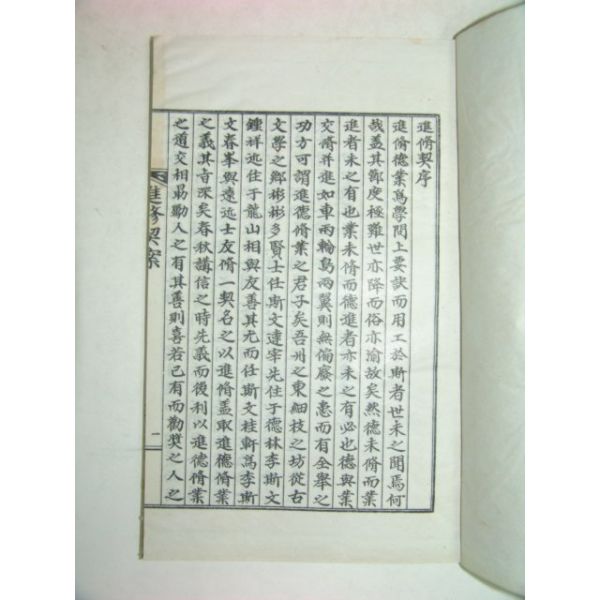 進脩契序
進脩德業爲學問上要訣而用工於斯者世未之聞焉何
哉盖其節度極難世亦降而俗亦渝故矣然德未脩而業
進者未之有也業未脩而德進者亦未之有必也德與業
交脩并進如車兩輪鳥兩翼則無偏廢之患而有全舉之
功方可謂進德脩業之君子矣吾州之東細技之坊從古
文學之鄕彬彬多賢士任斯文達宰先住于德林李斯文
鍾祥迹住于龍山相與友善其尤而任斯文桂軒爲李斯
文春峯與遠迩士友脩一契名之以進脩盖取進德脩業
之義其旨深矣春秋講信之時先義而後利以進德脩業
之道交相勗勵人之有其善則喜若己有而勸奬之人之
進修契案
一